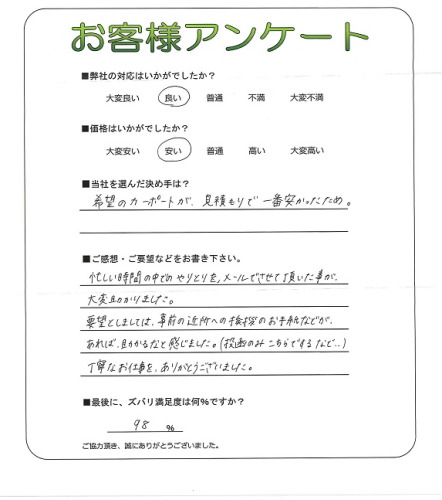 お客様アンケート
■弊社の対応はいかがでしたか？
大変良い 良い 普通 不満 大変不満
■価格はいかがでしたか？
大変安い 安い 普通 高い 大変高い
■当社を選んだ決め手は？
希望のカーポートが、見積もりで一番安かったため。
■ご感想・ご要望などをお書き下さい。
忙しい時間の中でのやりとりを、メールでさせて頂いた事が、
大変助かりました。
要望としましては、事前の近所への挨拶のお手紙などが、
あれば、助かるなと感じました。(投函のみこちらでするなど‥)
丁寧なお仕事を、ありがとうございました。
■最後に、ズバリ満足度は何%ですか？
98 %
ご協力頂き、誠にありがとうございました。